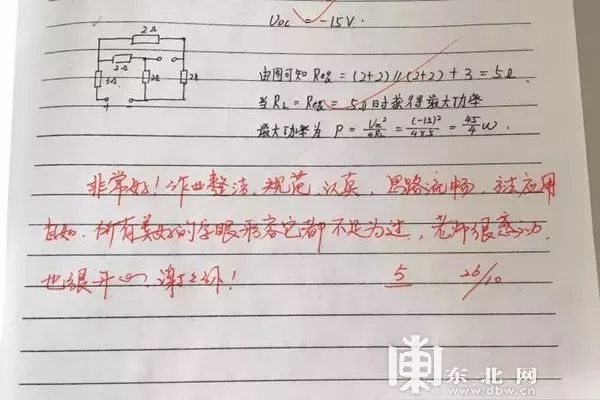 Uoc = -15V.
2Ω
2Ω
3Ω
2Ω
2Ω
由图可知 Req = (2+2)//(2+2) + 3 = 5Ω
当 RL = Req = 5Ω 时获得最大功率
最大功率为 P = Uoc²/4RL = (-15)²/4×5 = 45/4 W.
非常好！作业整洁、规范、认真，思路流畅，方法应用
自如，所有美好的字眼形容它都不足为过，老师很感动，
也很开心，谢
5
26/10
東北网
www.dbw.cn